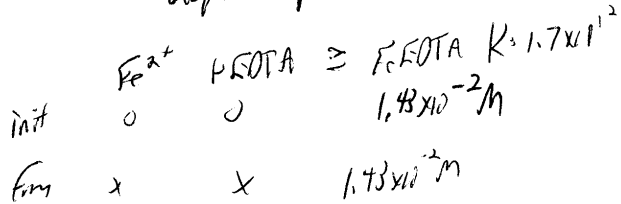 Fe²⁺ + EDTA ⇌ FeEDTA K: 1.7x10¹²
init 0 0 1.43x10⁻²M
x x 1.43x10⁻²M